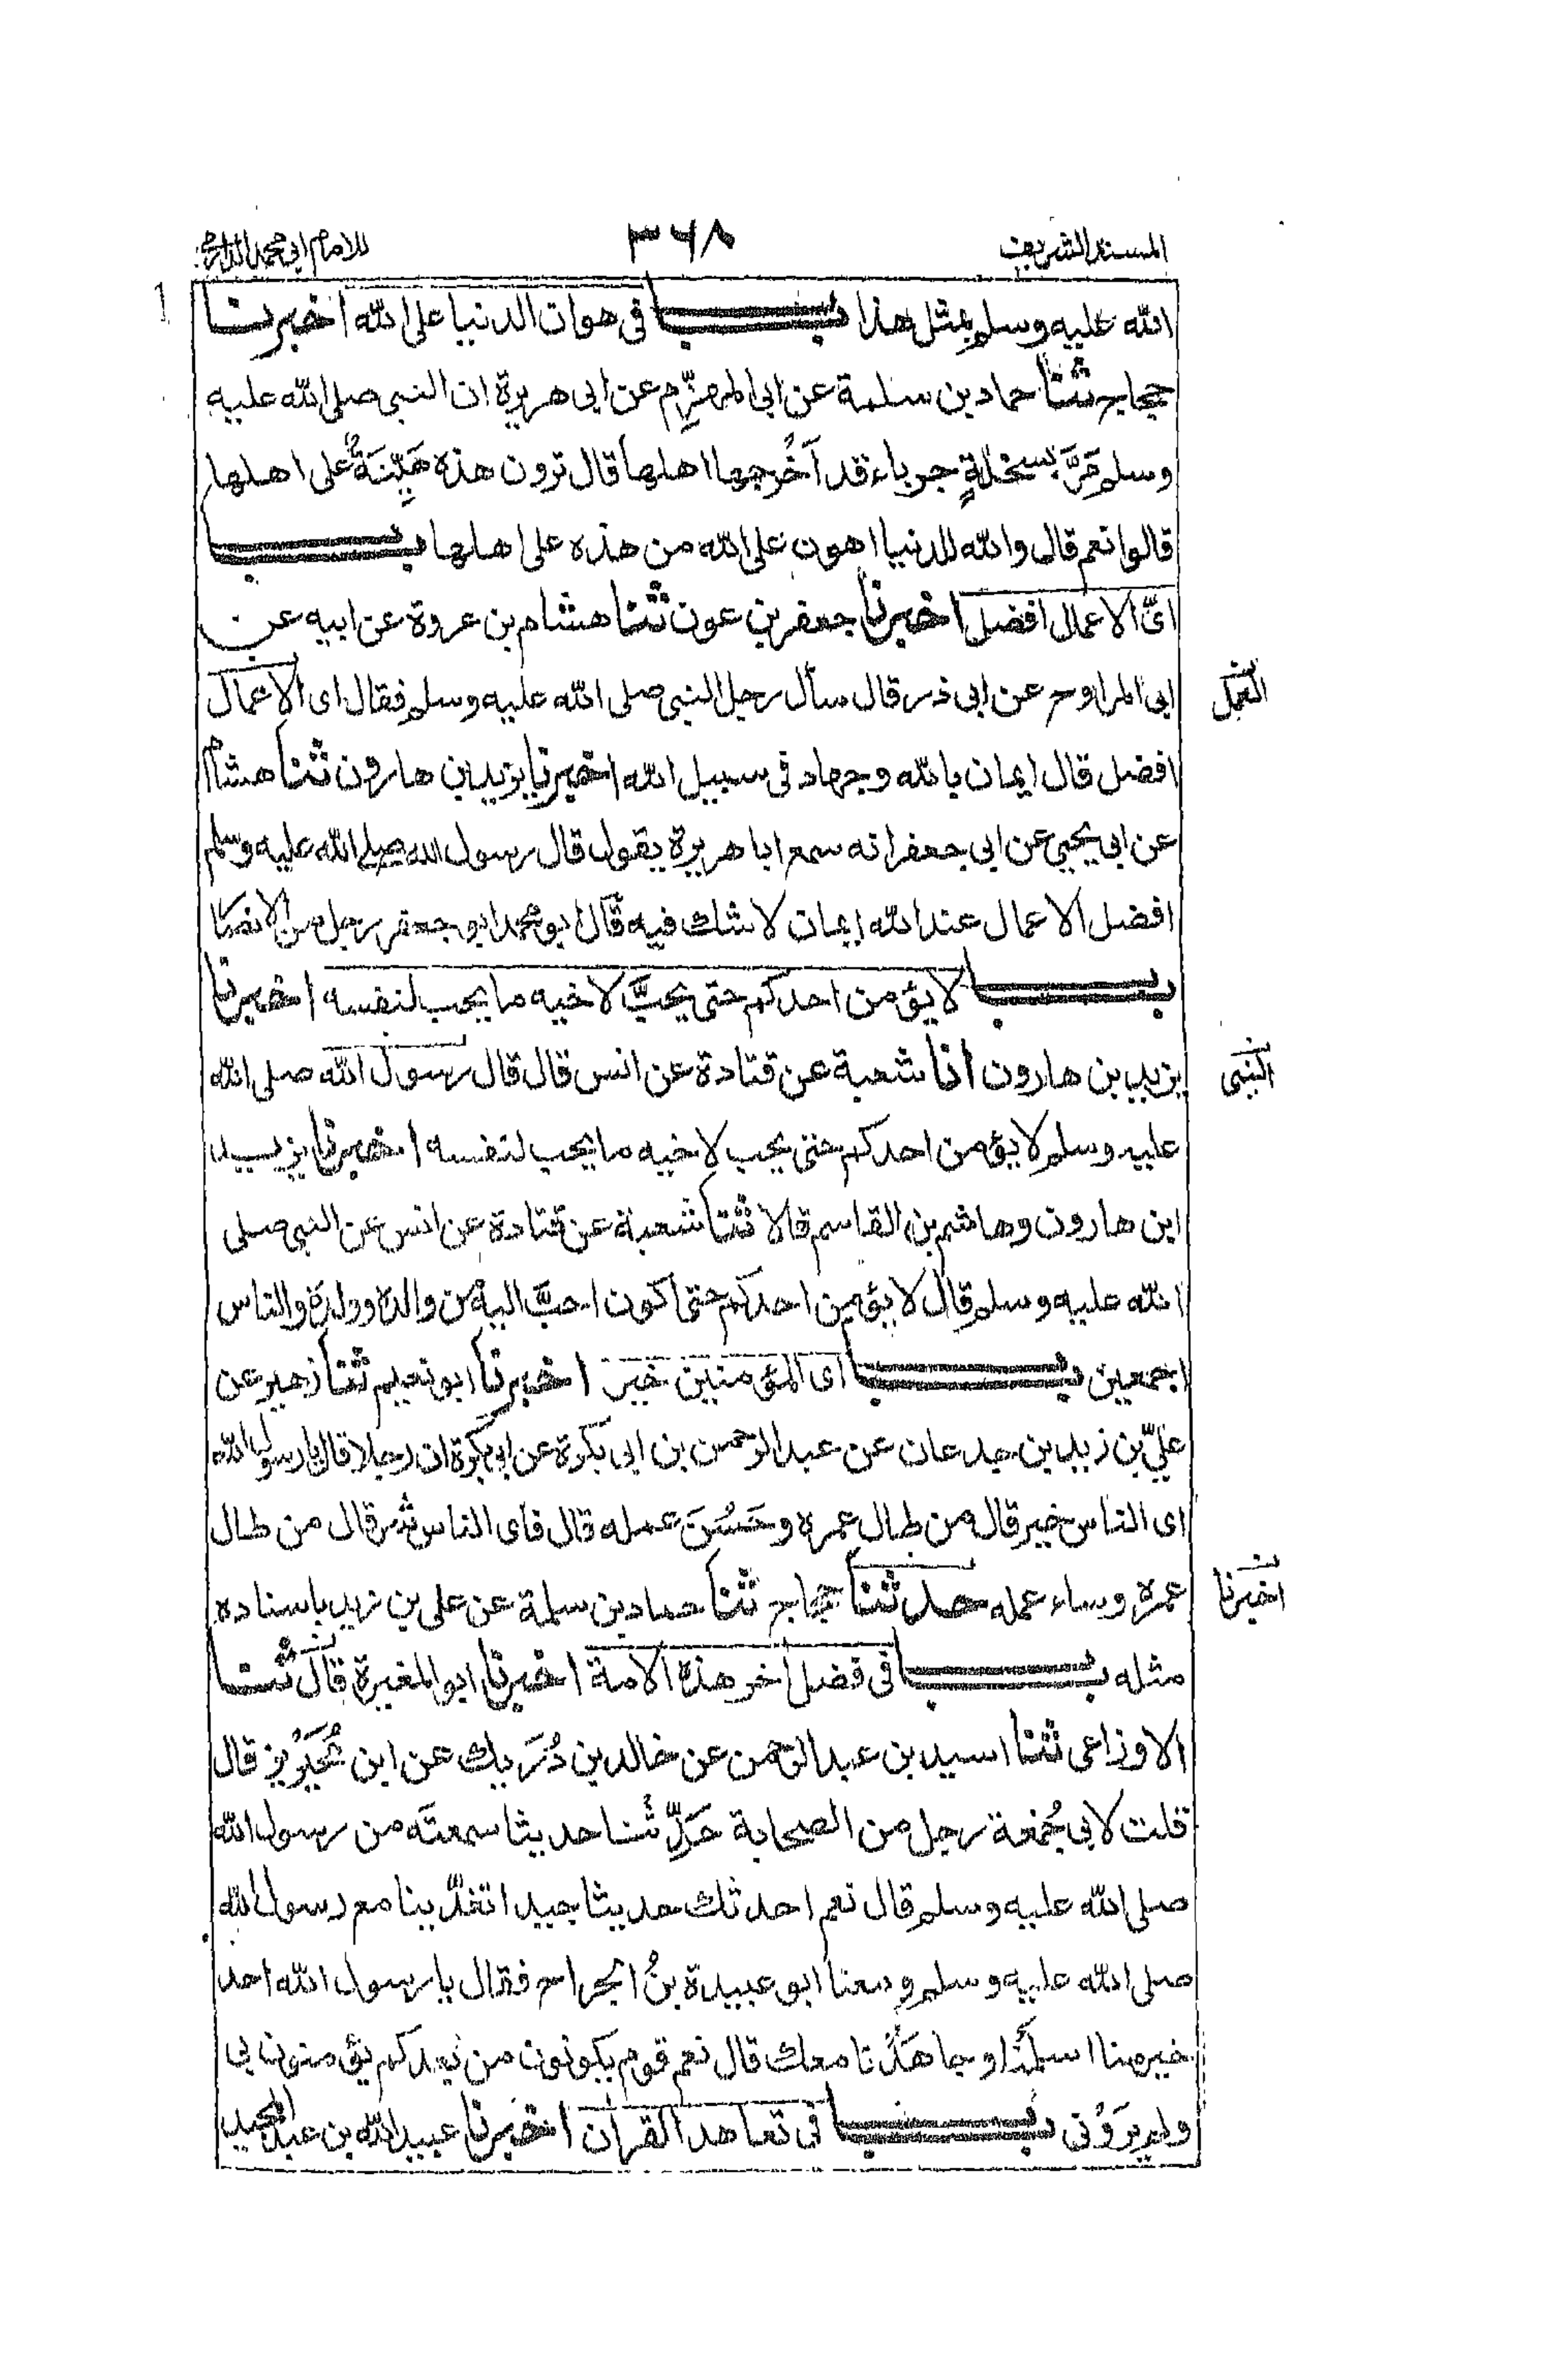 المسند الشريف ٣٦٨ للامام ابي محمد الدارمي
الله عليه وسلم بمثل هذا باب في هوان الدنيا على الله اخبرنا
حجاج ثنا حماد بن سلمة عن ابي المهزِّم عن ابي هريرة ان النبي صلى الله عليه
وسلم مَرَّ بسخلةٍ جرباء قد اَخْرجها اهلها قال ترون هذه هَيِّنَةً على اهلها
قالوا نعم قال والله للدنيا اهون على الله من هذه على اهلها باب
ايّ الاعمال افضل اخبرنا جعفر بن عون ثنا هشام بن عروة عن ابيه عن
ابي المراوح عن ابي ذر قال سأل رجل النبي صلى الله عليه وسلم فقال اى الاعمال
العمل
افضل قال ايمان بالله وجهاد في سبيل الله اخبرنا يزيد بن هارون ثنا هشام
عن ابي يحيى عن ابي جعفر انه سمع ابا هريرة يقول قال رسول الله صلى الله عليه وسلم
افضل الاعمال عند الله ايمان لا شك فيه قال ابو محمد ابو جعفر رجل من الانصا
باب لا يؤمن احدكم حتى يحبَّ لاخيه ما يحب لنفسه اخبرنا
يزيد بن هارون انا شعبة عن قتادة عن انس قال قال رسول الله صلى الله
النبي
عليه وسلم لا يؤمن احدكم حتى يحب لاخيه ما يحب لنفسه اخبرنا يزيد
ابن هارون وهاشم بن القاسم قالا ثنا شعبة عن قتادة عن انس عن النبي صلى
الله عليه وسلم قال لا يؤمن احدكم حتى اكون احبَّ اليه من والده وولده والناس
اجمعين باب اى المؤمنين خير اخبرنا ابو نعيم ثنا زهير عن
عليّ بن زيد بن جدعان عن عبد الرحمن بن ابي بكرة عن ابي بكرة ان رجلا قال يا رسول الله
اى الناس خير قال من طال عمره وحَسُنَ عمله قال فاى الناس شر قال من طال
عمره وساء عمله حدثنا حجاج ثنا حماد بن سلمة عن على بن زيد باسناده
اخبرنا
مثله باب في فضل اخر هذه الامة اخبرنا ابو المغيرة قال ثنا
الاوزاعى ثنا اسيد بن عبد الرحمن عن خالد بن دُرَيك عن ابن مُحَيْرِيز قال
قلت لابي جُمْعة رجل من الصحابة حَدِّثنا حديثا سمعتَه من رسول الله
صلى الله عليه وسلم قال نعم احدثك حديثا جيدا تغدّينا مع رسول الله
صلى الله عليه وسلم ومعنا ابو عبيدة بنُ الجراح فقال يا رسول الله احد
خير منا اسلمْنا وجاهَدْنا معك قال نعم قوم يكونون من بعدكم يؤمنون بي
ولم يرَوْني باب في تعاهد القران اخبرنا عبيد الله بن عبد المجيد